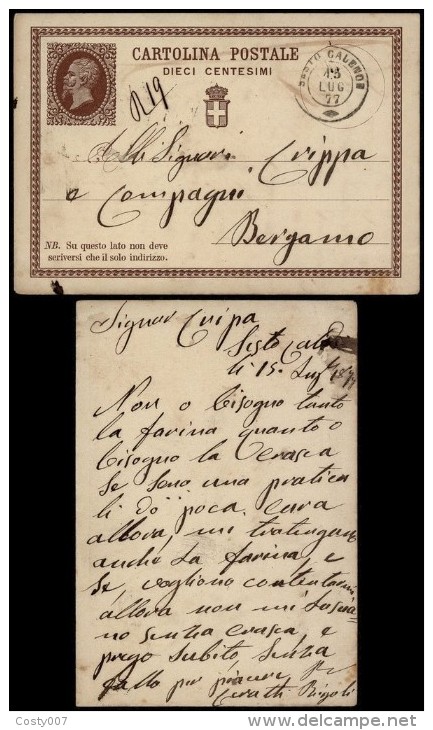 CARTOLINA POSTALE
DIECI CENTESIMI
SESTO CALENDE
15
LUG
77
R 19
Alli Signori Crippa
e Compagni
Bergamo
NB. Su questo lato non deve
scriversi che il solo indirizzo.
Signor Cripa
Sesto
li 15. Lug
Non o bisogno tanto
la farina quanto o
bisogno la Crasca
se sono una pratica
li dò poca cura
allora, mi
anche la farina, e
se vogliono contentarmi
allora non mi lascia
no senza crasca, e
prego subito senza
fallo per piacere

Costy007
www.delcampe.net